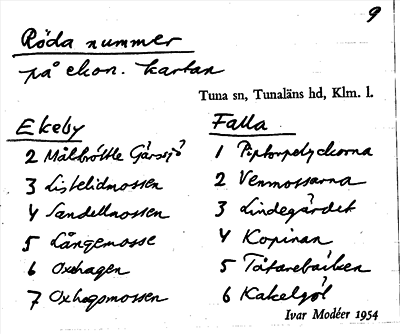 9
Röda nummer
på ekon. kartan
Tuna sn, Tunaläns hd, Klm. l.
Ekeby
2 Målbröttle Gårssjö
3 Listelidmossen
4 Sandellmossen
5 Långemosse
6 Oxhagen
7 Oxhagsmossen
Falla
1 Piptorpelyckorna
2 Venmossarna
3 Lindegärdet
4 Kopinan
5 Tåtarebacken
6 Kakelgöl
Ivar Modéer 1954